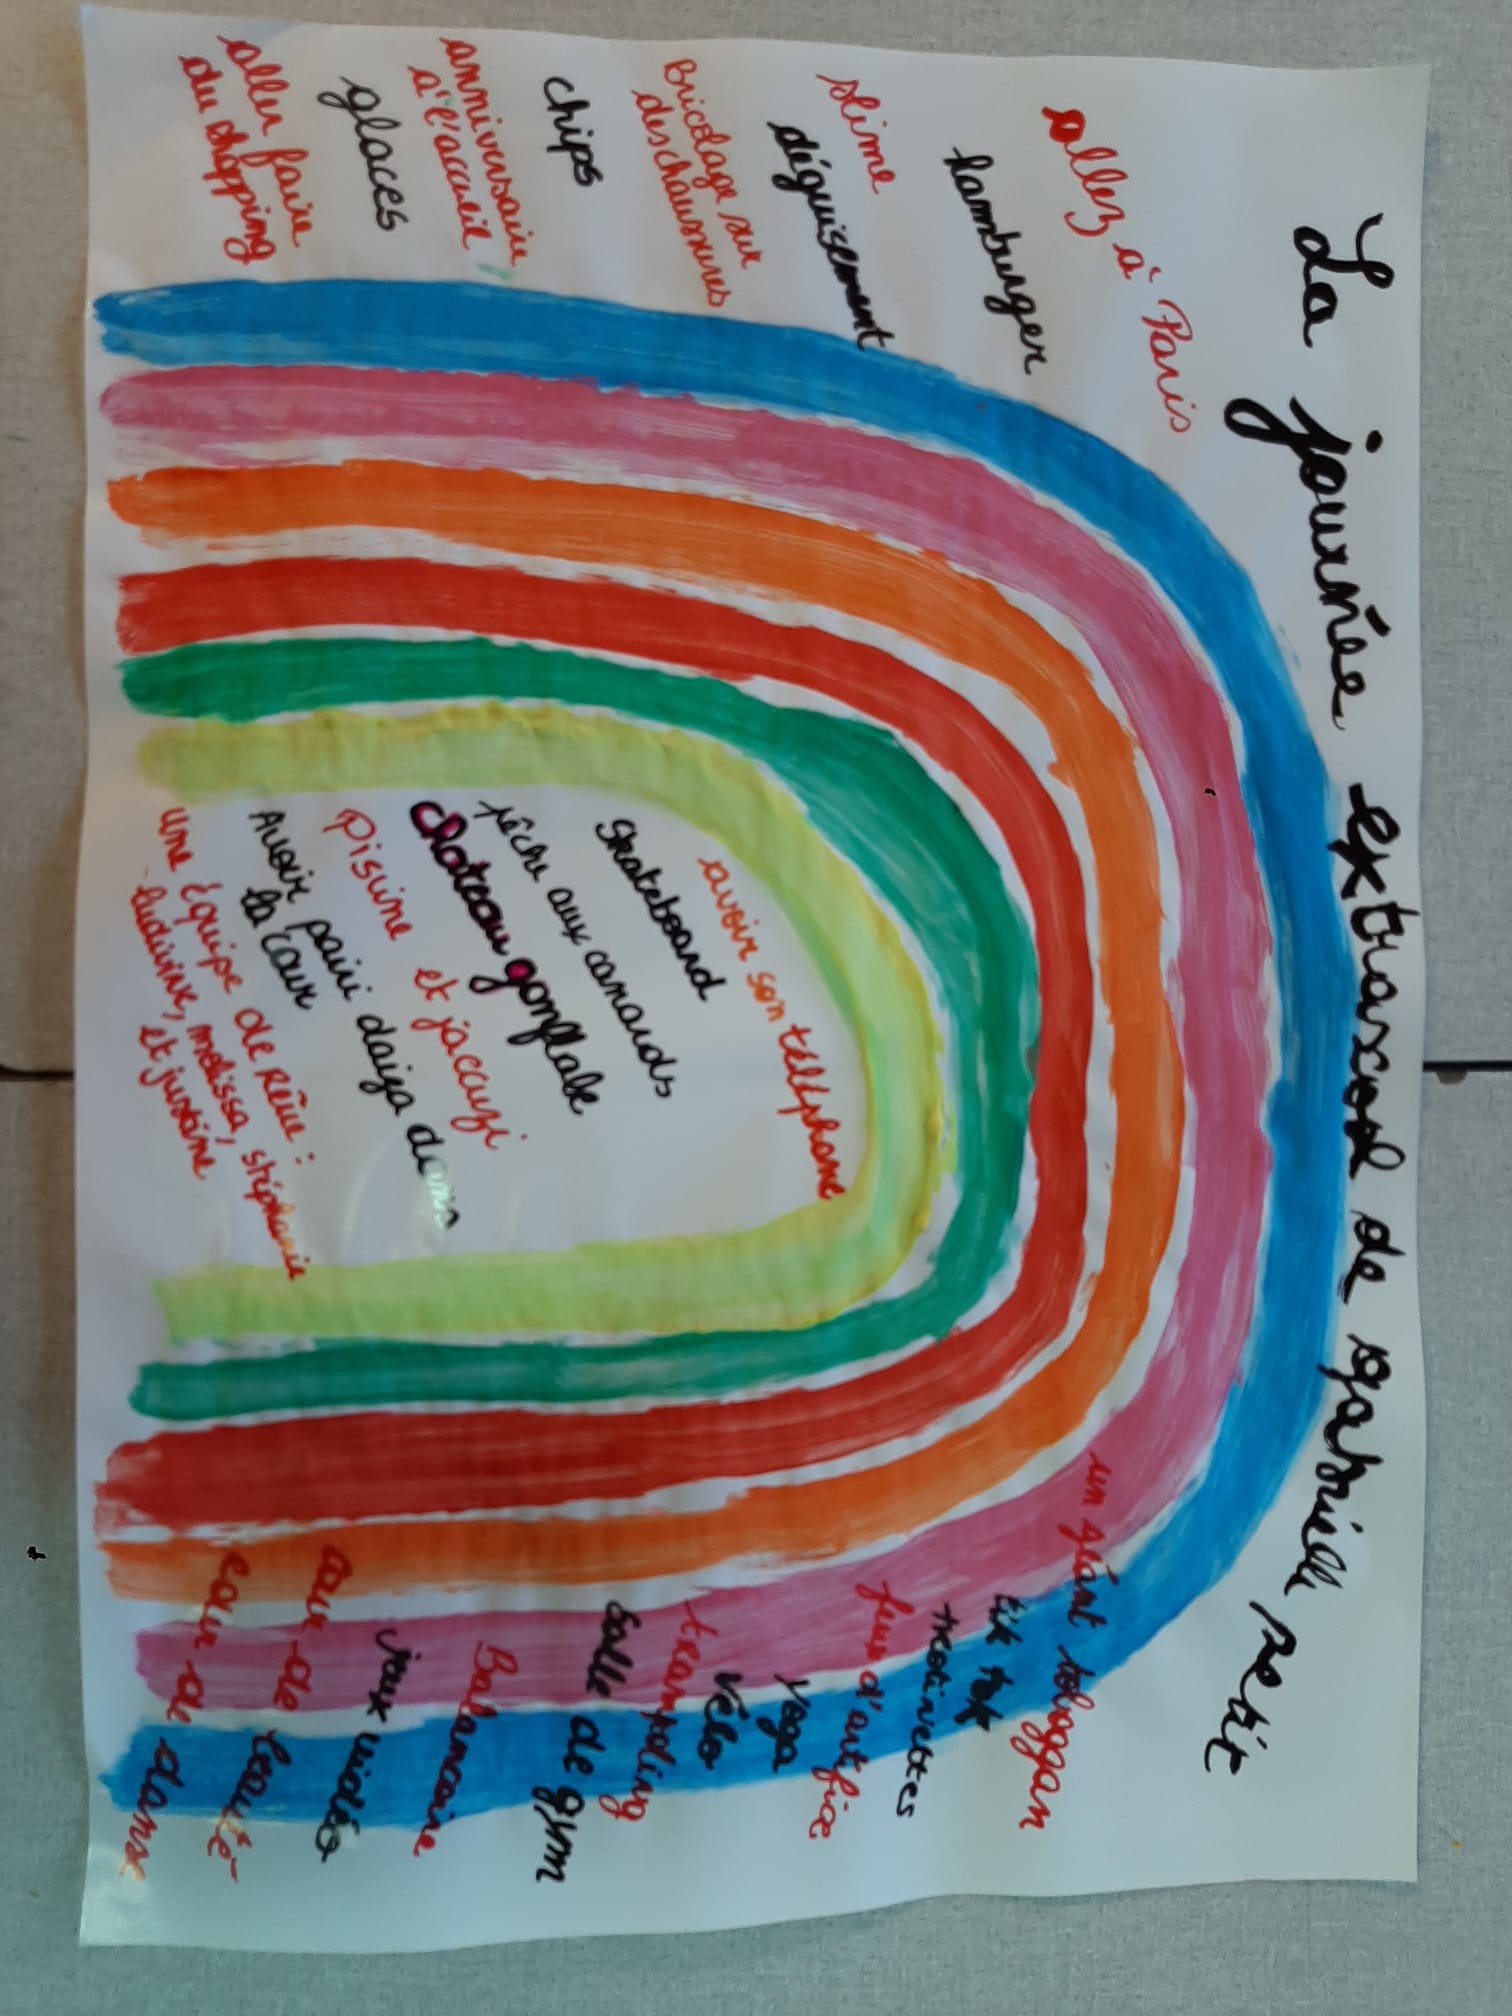 La journée extrascool de gabriell petit
allez à Paris
hamburger
slime
déguisement
Bricolage sur
des chaussures
chips
anniversaire
à l'accueil
glaces
aller faire
du shopping
avoir son téléphone
Skateboard
pêche aux canards
chateau gonflable
Piscine et jaccuzi
Avoir pairi daiza dans
la cour
une équipe de rêve :
ludivine, mélissa, stéphanie
et justine
un géant toboggan
tik tok
trotinettes
feux d'artfice
Yoga
Vélo
trampoling
Salle de gym
Balancoire
jeux vidéo
cour de beauté
cour de danse